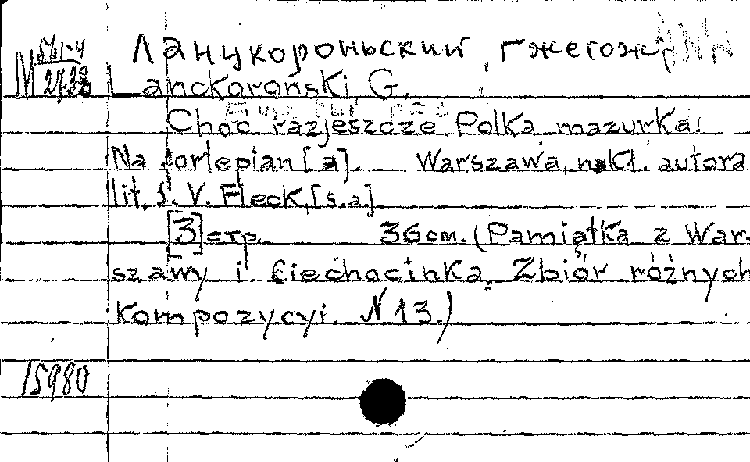 Ланцкороньский, Гжегож
M 2723
Lanckoroński, G.
Choć raz jeszcze Polka mazurka.
Na fortepian [a]. Warszawa, nakł. autora
lit. S. V. Fleck, [s.a.]
[3] стр. 36 см. (Pamiątka z War-
szawy i Ciechocinka. Zbiór różnych
kompozycyi. N 13.)
15980